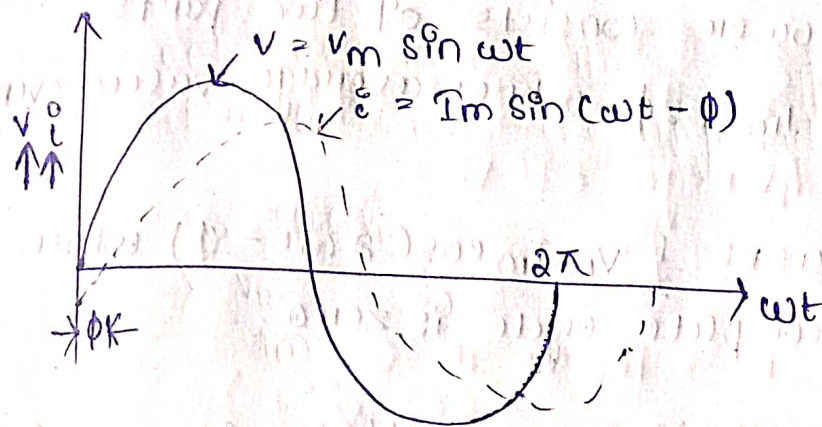 V = Vm sin ωt
i = Im sin (ωt - φ)
V i
2π
ωt
φ